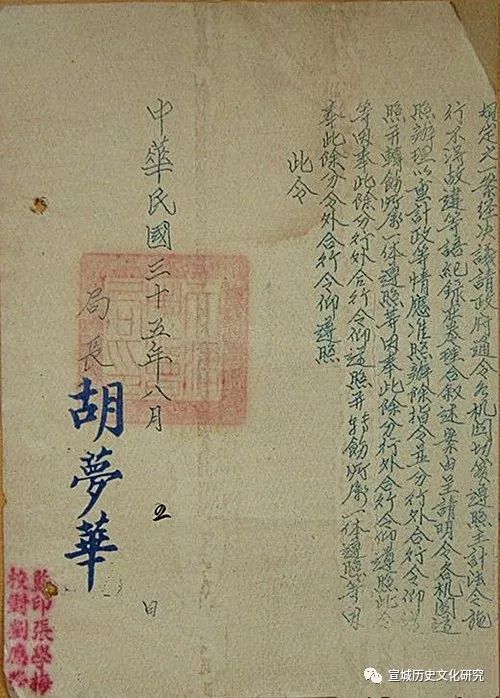 規定之一案經決議請政府通令各机関切實遵照主計法令施
行不得故違等語紀錄在卷理合敘述案由呈請明令各机関遵
照辦理以重計政等情應准照辦除指令並分行外合行令仰遵
照并轉飭所屬一体遵照等因奉此除分行外合行令仰遵照此令
等因奉此除分行外合行令仰遵照并轉飭所屬一体遵照等因
奉此除分令外合行令仰遵照
此令
中華民國三十五年八月 2 日
局長 胡夢華
監印張學梅
校對劉應
宣城历史文化研究